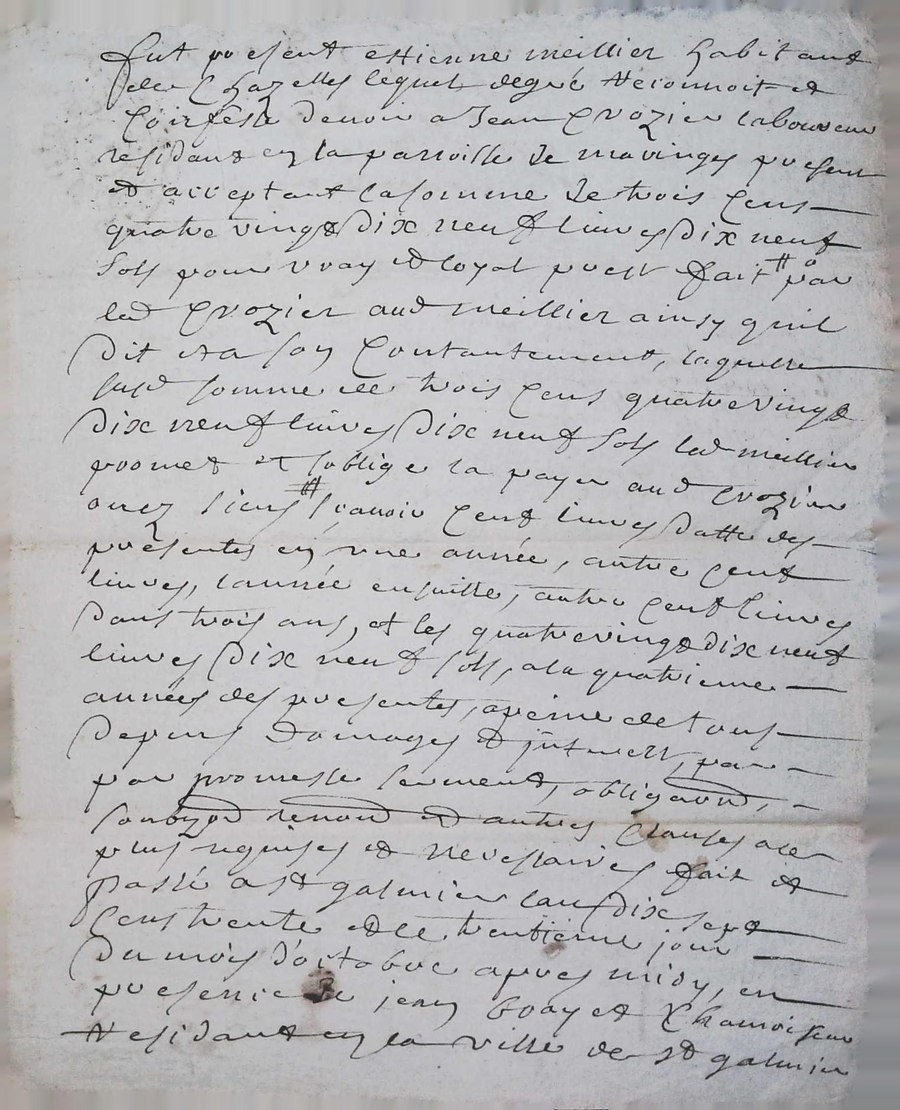 fut present ettienne meillier habitant
de Chazelles lequel de gré reconnoit et
Confesse devoir a Jean Crozier laboureur
residant en la parroisse de maringes present
et acceptant la somme de trois Cens
quatre vingt dix neuf livres dix neuf
sols pour vray et loyal prest fait par
led Crozier aud meillier ainsy quil
dit et a son Contantement, laquelle
susd somme de trois Cens quatre vingt
dix neuf livres dix neuf sols led meillier
promet et soblige la payer aud Crozier
ou ez siens sçavoir Cent livres datte des
presentes en une année, autre Cent
livres, lannée ensuitte, autre Cent livres
dans trois ans, et les quatre vingt dix neuf
livres dix neuf sols, a la quatrieme
année des presentes, a peine de tous
depens domages et jnterest, par
par promesse serment, obligaond,
soubzon renond et autres Clauses a ce
plus requises et necessaires fait et
passé a st galmier lan dix sept
Cens trente et le trentieme jour
du mois d'octobre apres midy, en
presence de jean boay et Chamoiseau
residant en la ville de st galmier